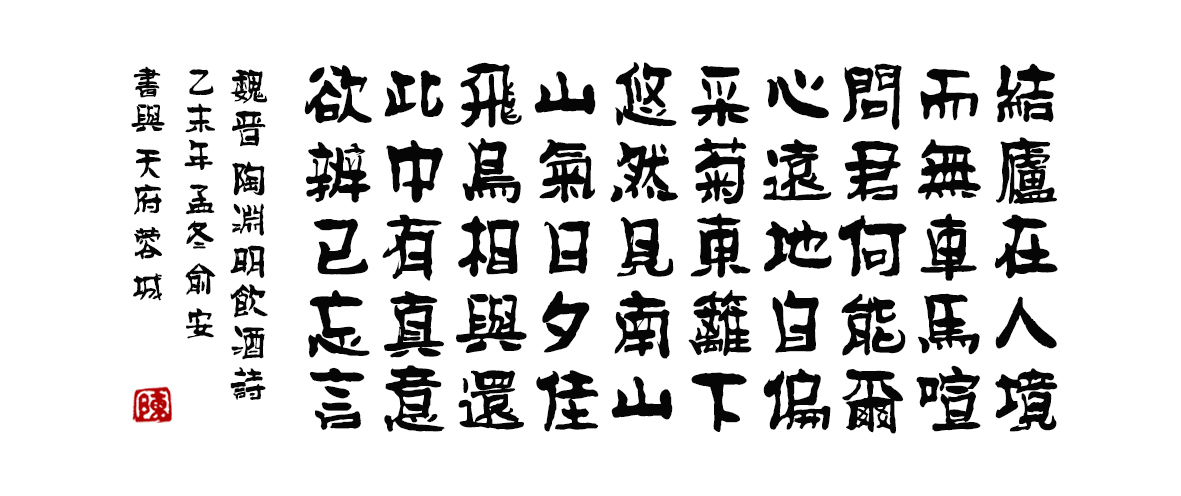 結廬在人境
而無車馬喧
問君何能爾
心遠地自偏
采菊東籬下
悠然見南山
山氣日夕佳
飛鳥相與還
此中有真意
欲辨已忘言
魏晋 陶淵明飲酒詩
乙未年孟冬 俞安
書與 天府蓉城
陳